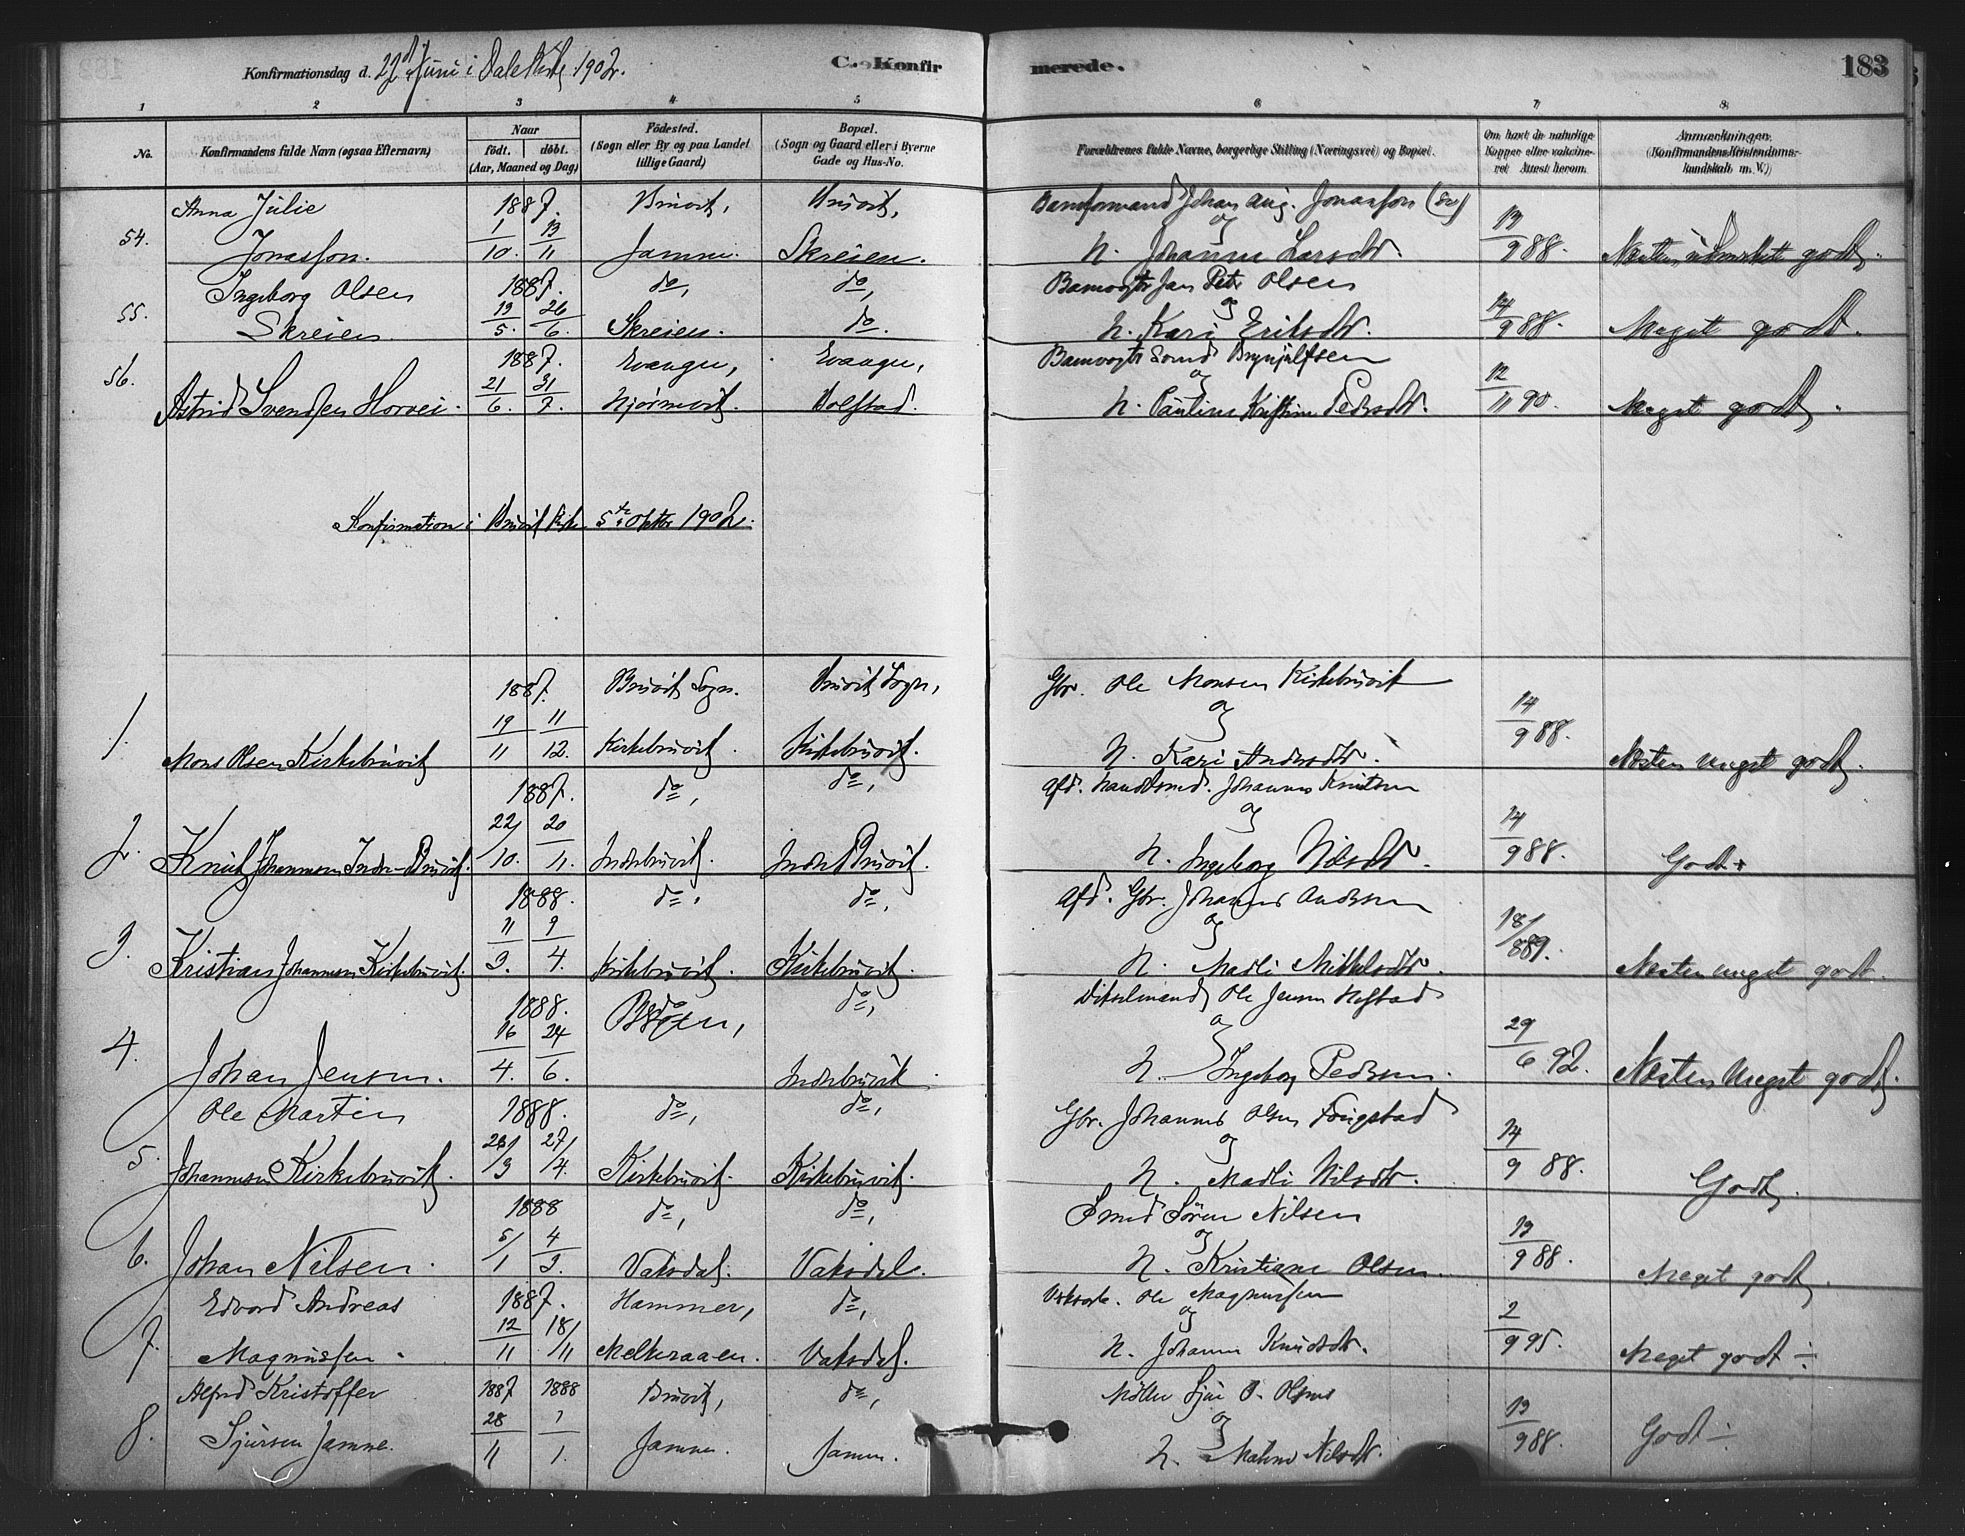 Konfirmationsdag d. 22d Juni i Dale Kirke 1902.
C. Konfir
merede.
183
1 2 3 4 5 6 7 8
No.
Konfirmandens fulde Navn (ogsaa Efternavn)
Naar
födt. döbt.
(Aar, Maaned og Dag)
Födested.
(Sogn eller By og paa Landet
tillige Gaard)
Bopæl.
(Sogn og Gaard eller i Byerne
Gade og Hus-No.
Forældrenes fulde Navne, borgerlige Stilling (Næringsvei) og Bopæl.
Om havt de naturlige
Kopper eller vakcine-
ret Attest herom.
Anmærkninger.
(Konfirmandens Kristendoms-
kundskab m. V.)
Anna Julie 1887. Bruvik, Bruvik, Johan Aug. Jonasson 13
54. Jonasson. 1/10. 13/11 Jamne. Skreien. og N. Johanne Larsdtr. 9 88. Næsten udmerket godt.
Ingeborg Olsen 1887. do, do, Olsen
55. Skreien 13/5. 26/6. Skreien. do. og N. Kari Eriksdtr. 14/9 88. Meget godt.
56. 1887. Evanger, Evanger, Brynjulfsen
Astrid Svendsen Horvei. 21/6. 31/7. Bolstad. og N. Pauline Kristine Pedersdtr. 12/11 90. Meget godt.
Konfirmation i Bruvik Kirke 5te Oktbr 1902.
1887. Bruvik Sogn. Bruvik Sogn, Gbr. Ole Monsen Kirkebruvik
1. Mons Olsen Kirkebruvik 19/11 11/12. Kirkebruvik. Kirkebruvik. og N. Kari Andersdtr. 14/9 88. Næsten meget godt.
1887. do, do, Afd. Johannes Knutsen
2. Knut Johannesen Indre-Bruvik. 22/10. 20/11. Indrebruvik. Indre Bruvik. og N. Ingeborg Nilsdtr. 14/9 88. Godt +
1888. do, do, Afd. Gbr. Johannes Andersen
3. Kristian Johannesen Kirkebruvik. 11/3. 9/4. Kirkebruvik. Kirkebruvik. og N. Madli Mikkelsdtr. 18/8 89. Næsten meget godt.
1888. Bergen, do, Ole Jensen Hefstad
4. Johan Jensen. 16/4. 24/6. Indrebruvik og N. Ingeborg Pedersen. 29/6 92. Næsten meget godt.
Ole Martin 1888. do, do, Gbr. Johannes Olsen
5. Johannesen Kirkebruvik. 27/4. Kirkebruvik. Kirkebruvik. og N. Madli Nilsdtr. 14/9 88. Godt.
1888 do, do, Smed Sören Nilsen
6. Johan Nilsen. 5/1 4/3. Vaksdal. Vaksdal. og N. Kristiane Olsen. 13/9 88. Meget godt.
Edvard Andreas 1887. Hammer, do, Ole Magnussen
7. Magnussen. 12/11 18/11 Melkeraaen. Vaksdal. og N. Johanne Knudsdtr. 2/9 95. Meget godt ÷
Alfred Kristoffer 1887 1888 Bruvik, do, Möller Sjur O. Olsnes
8. Sjursen Jamne. 28/11 1/1. Jamne. Jamne. og N. Malene Nilsdtr. 13/9 88. Godt ÷